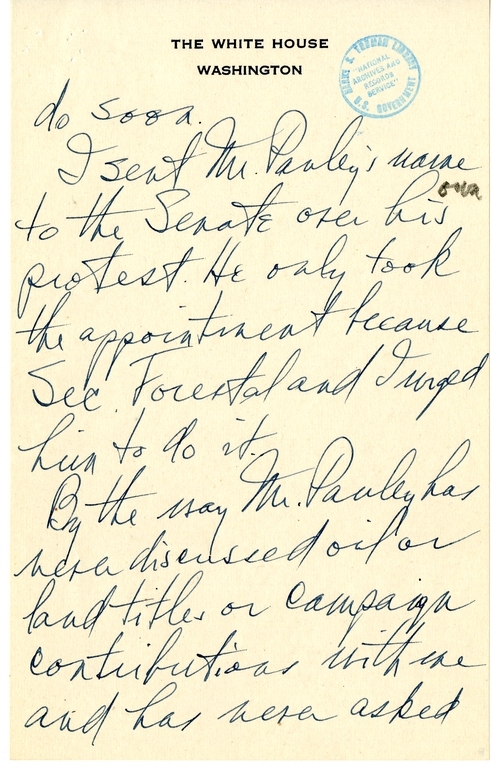 THE WHITE HOUSE
WASHINGTON
HARRY S. TRUMAN LIBRARY
"NATIONAL
ARCHIVES AND
RECORDS
SERVICE"
U.S. GOVERNMENT
do soon.
I sent Mr. Pauley's name
own
to the Senate over his
protest. He only took
the appointment because
Sec. Forestal and I urged
him to do it.
By the way Mr. Pauley has
never discussed oil or
land titles or campaign
contributions with me
and has never asked